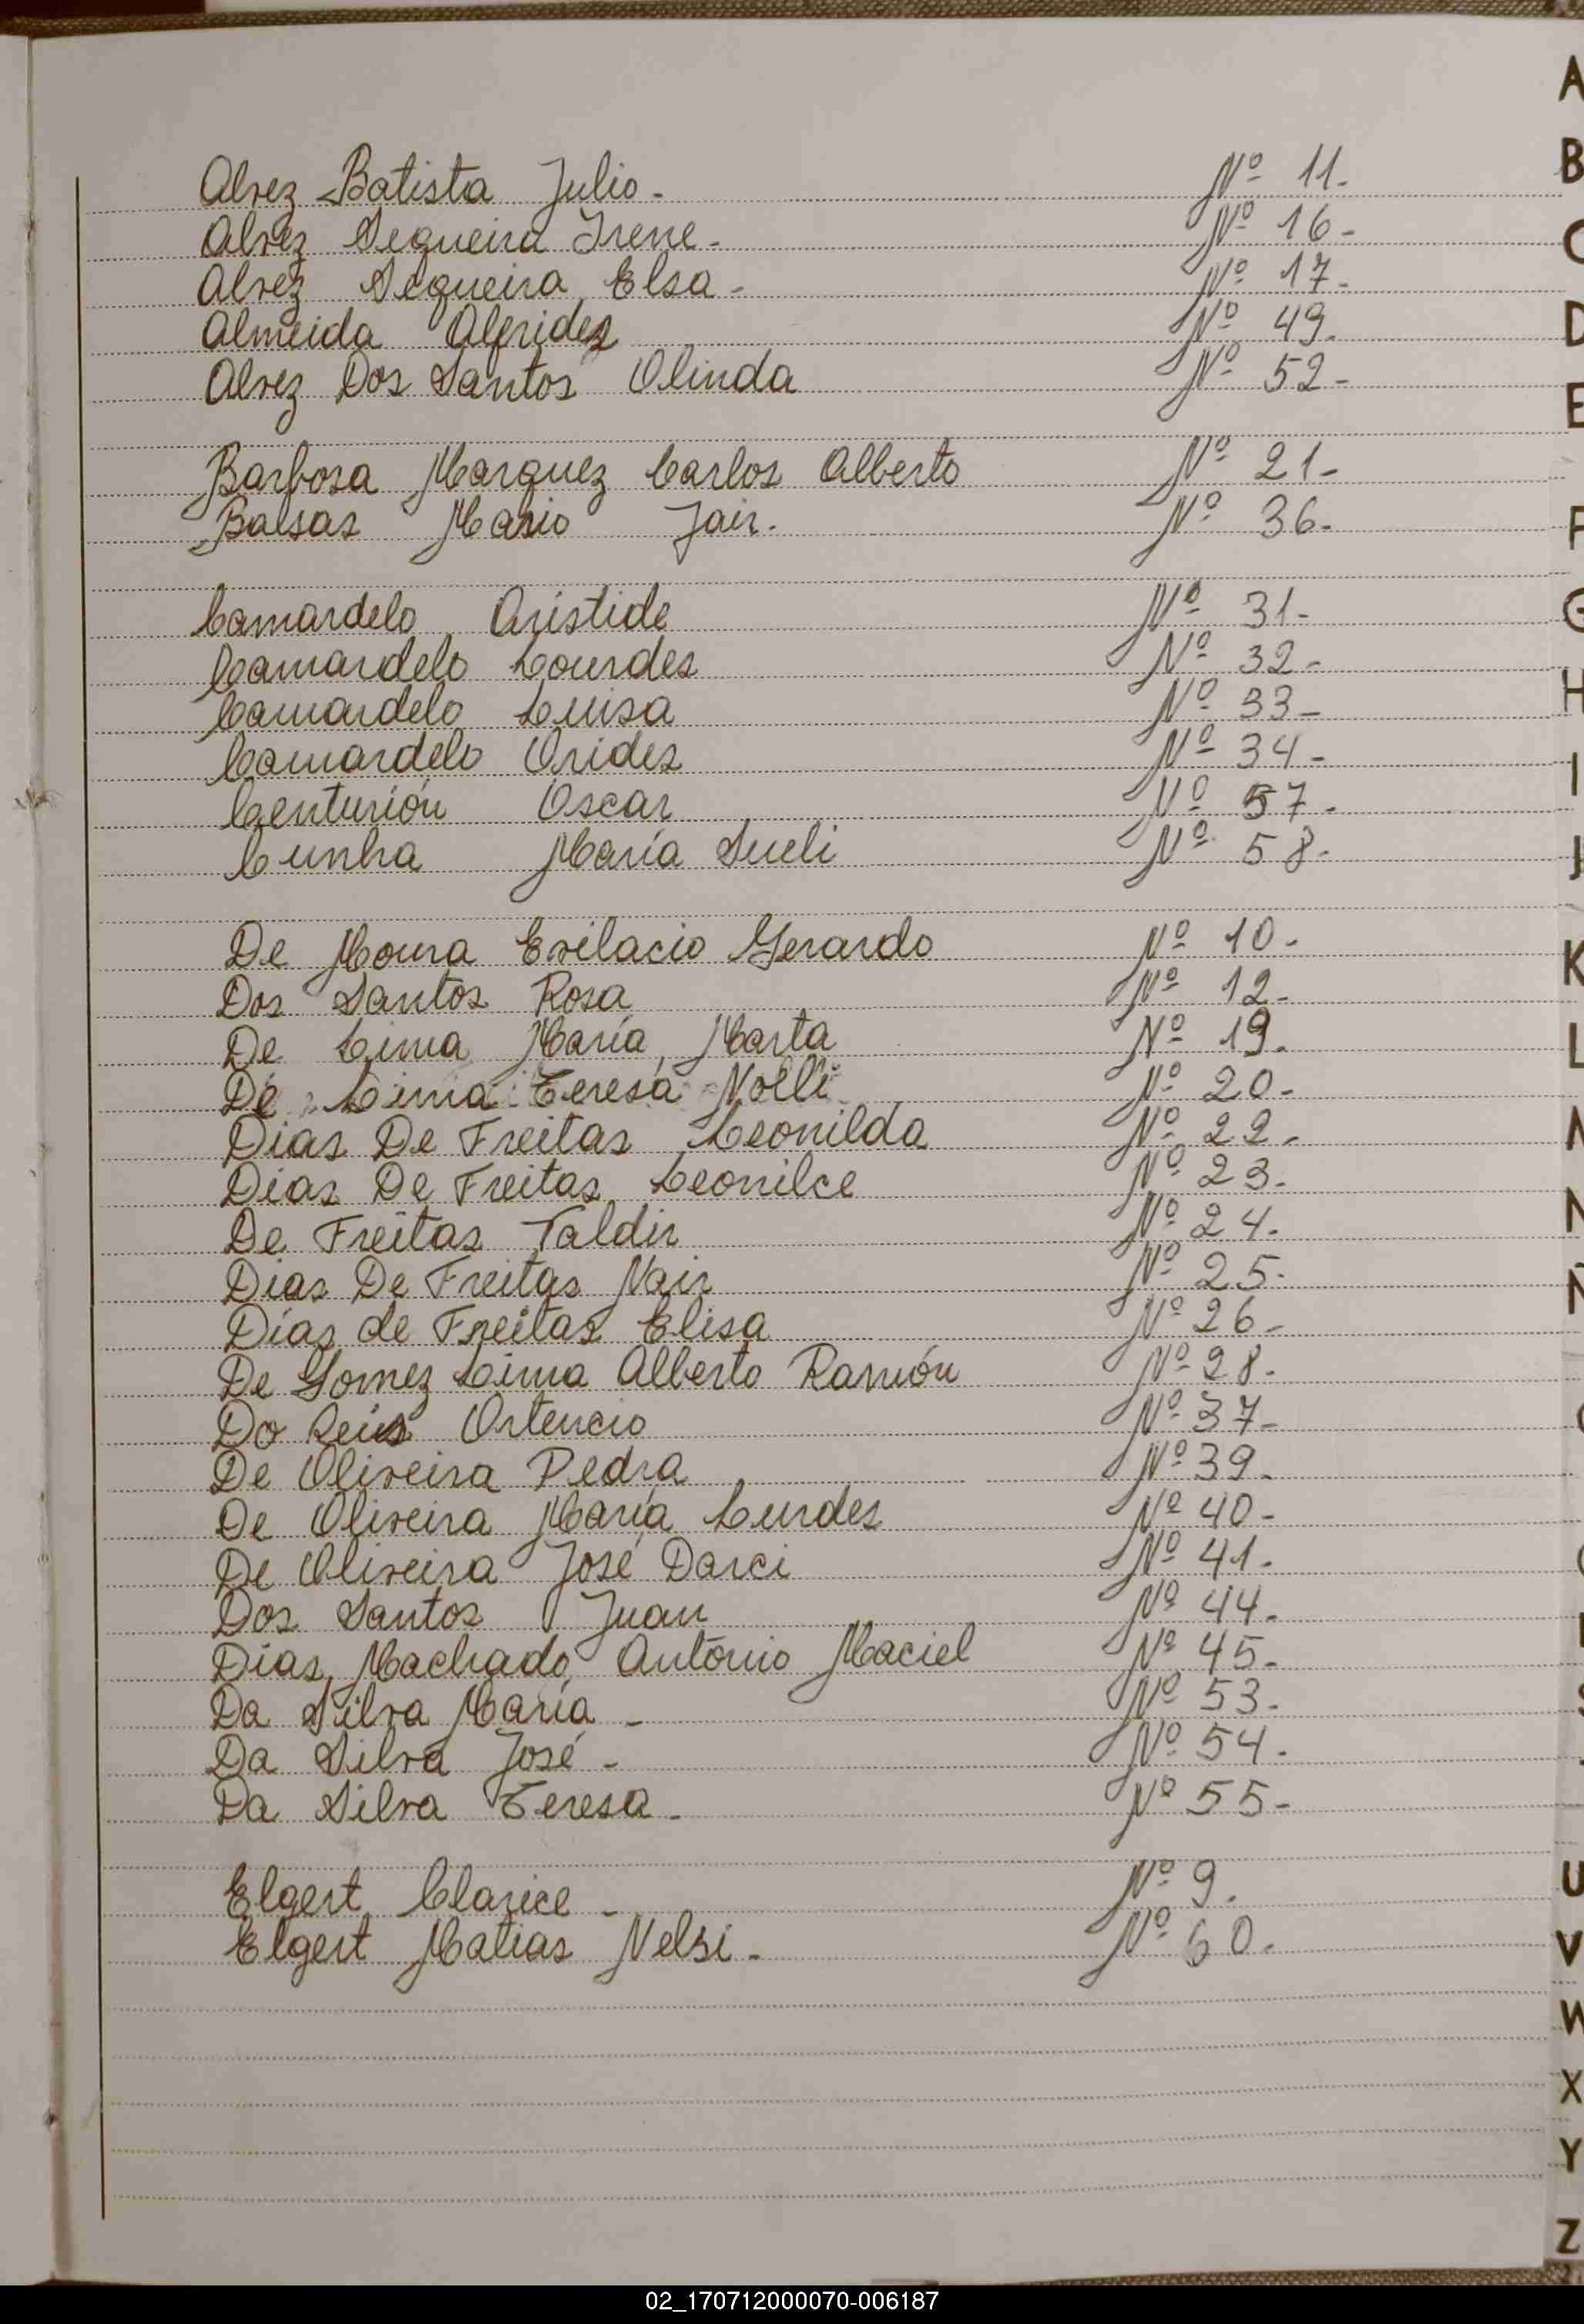 Alvez Batista Julio - Nº 11.-
Alvez Sequeira Irene - Nº 16 -
Alvez Sequeira Elsa - Nº 17 -
Almeida Alfridez Nº 49.
Alvez Dos Santos Olinda Nº 52 -
Barbosa Marquez Carlos Alberto Nº 21 -
Balsas Mario Jair. Nº 36 -
Camardelo Aristide Nº 31 -
Camardelo Lourdes Nº 32 -
Camardelo Luisa Nº 33 -
Camardelo Orides Nº 34 -
Centurión Oscar Nº 57 -
Cunha María Sueli Nº 58 -
De Moura Evilacio Gerardo Nº 10 -
Dos Santos Rosa Nº 12 -
De Lima María Marta Nº 19.
De Lima Teresa Noeli Nº 20 -
Dias De Freitas Leonilda Nº 22 -
Dias De Freitas Leonilce Nº 23.
De Freitas Valdir Nº 24.
Dias De Freitas Nair Nº 25 -
Días de Freitas Elisa Nº 26 -
De Gomez Lima Alberto Ramón Nº 28.
Do Reis Ortencio Nº 37 -
De Oliveira Pedra Nº 39.
De Oliveira María Lurdes Nº 40 -
De Oliveira José Darci Nº 41 -
Dos Santos Juan Nº 44.
Días Machado António Maciel Nº 45 -
Da Silva María - Nº 53 -
Da Silva José - Nº 54 -
Da Silva Teresa - Nº 55 -
Elgert Clarice - Nº 9.
Elgert Matias Nelsi - Nº 60.
A
B
C
D
E
F
G
H
I
J
K
L
M
N
Ñ
U
V
W
X
Y
Z
02_170712000070-006187